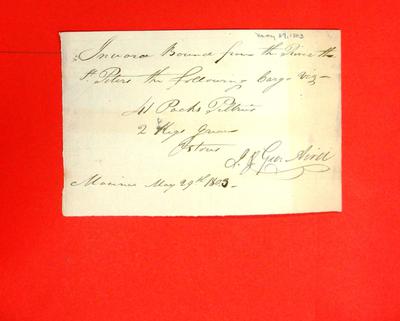 May 29, 1803
Inward Bound from the River the
St. Peters the following Cargo Viz
41 Packs Peltries
2 Kegs
J. & Geo. Aird
May 29th 1803